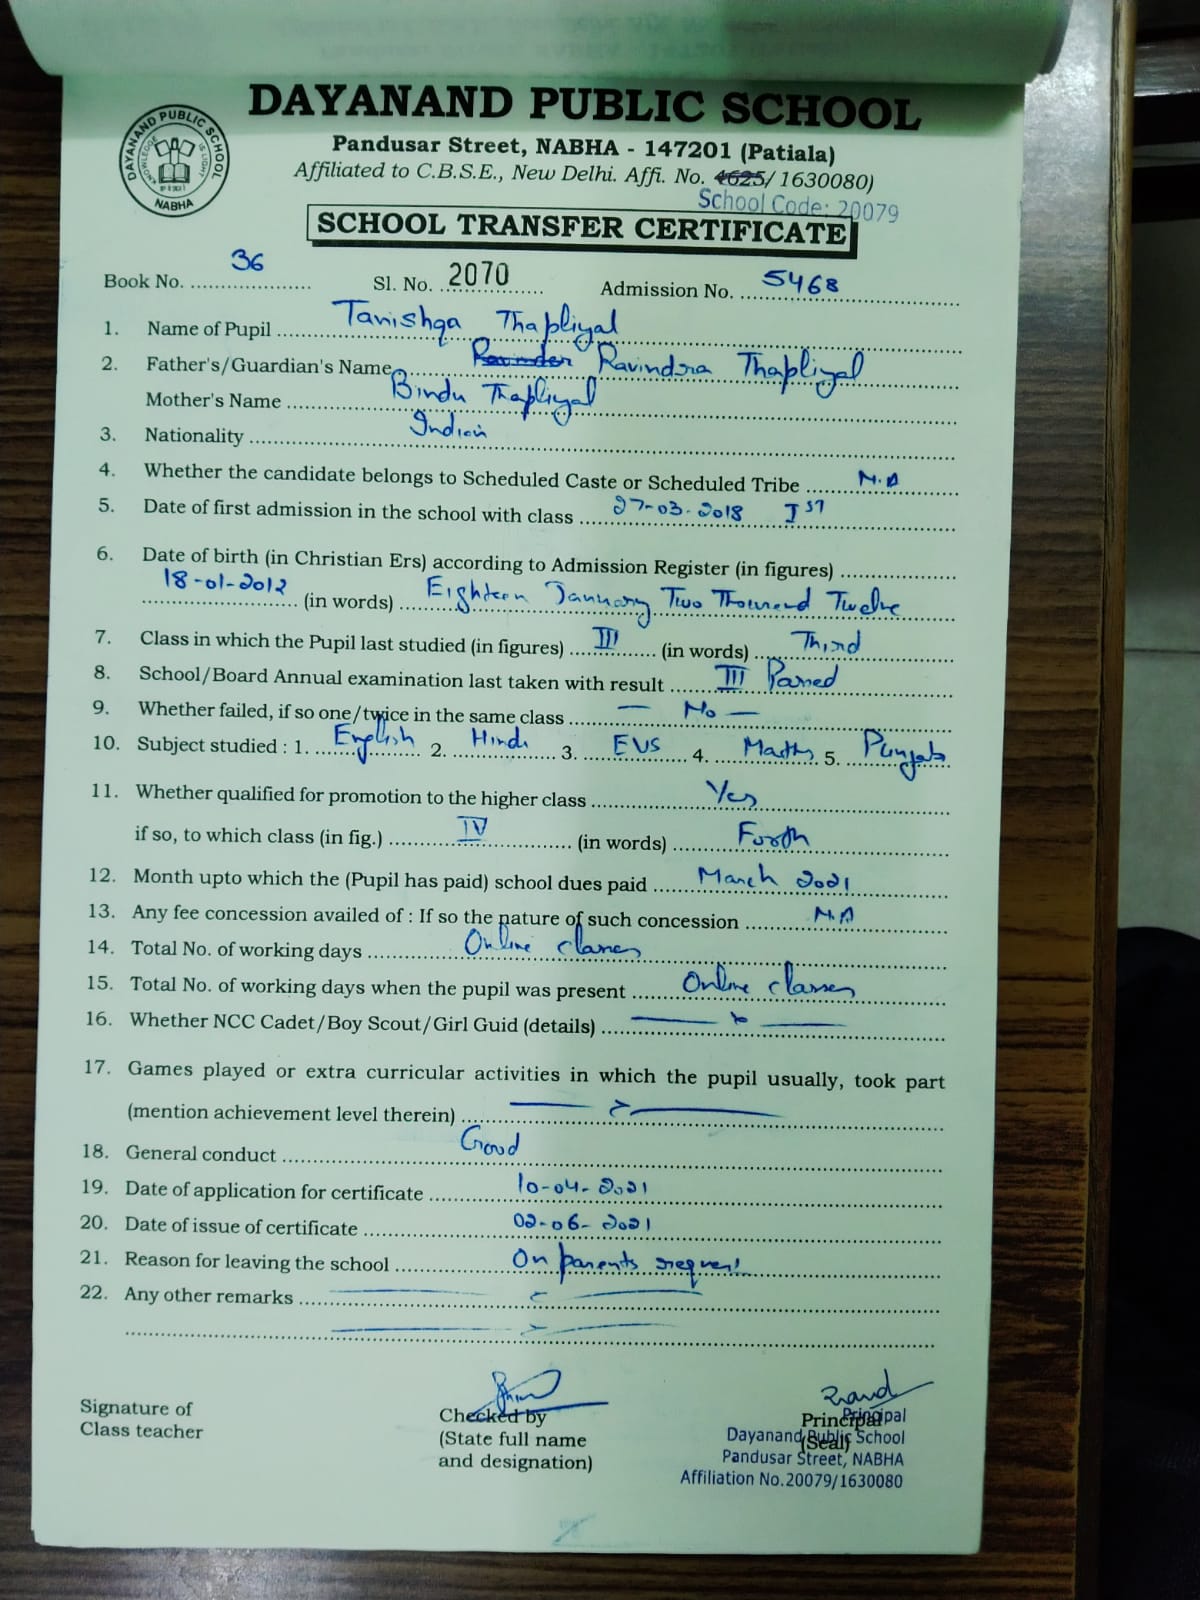 DAYANAND PUBLIC SCHOOL
Pandusar Street, NABHA - 147201 (Patiala)
Affiliated to C.B.S.E., New Delhi. Affi. No. 4625/ 1630080)
School Code: 20079
DAYANAND PUBLIC SCHOOL
KNOWLEDGE IS LIGHT
NABHA
SCHOOL TRANSFER CERTIFICATE
Book No. 36 Sl. No. 2070 Admission No. 5468
1. Name of Pupil Tanishqa Thapliyal
2. Father's/Guardian's Name Ravinder Ravindra Thapliyal
Mother's Name Bindu Thapliyal
3. Nationality Indian
4. Whether the candidate belongs to Scheduled Caste or Scheduled Tribe N.A
5. Date of first admission in the school with class 27-03-2018 Ist
6. Date of birth (in Christian Ers) according to Admission Register (in figures)
18-01-2012 (in words) Eighteen January Two Thousand Twelve
7. Class in which the Pupil last studied (in figures) III (in words) Third
8. School/Board Annual examination last taken with result III Passed
9. Whether failed, if so one/twice in the same class — No —
10. Subject studied : 1. English 2. Hindi 3. EVS 4. Maths 5. Punjabi
11. Whether qualified for promotion to the higher class Yes
if so, to which class (in fig.) IV (in words) Forth
12. Month upto which the (Pupil has paid) school dues paid March 2021
13. Any fee concession availed of : If so the nature of such concession N.A
14. Total No. of working days Online classes
15. Total No. of working days when the pupil was present Online classes
16. Whether NCC Cadet/Boy Scout/Girl Guid (details)
17. Games played or extra curricular activities in which the pupil usually, took part
(mention achievement level therein)
18. General conduct Good
19. Date of application for certificate 10-04-2021
20. Date of issue of certificate 02-06-2021
21. Reason for leaving the school On parents request
22. Any other remarks
Signature of
Class teacher
Checked by
(State full name
and designation)
Principal
(Seal)
Principal
Dayanand Public School
Pandusar Street, NABHA
Affiliation No.20079/1630080